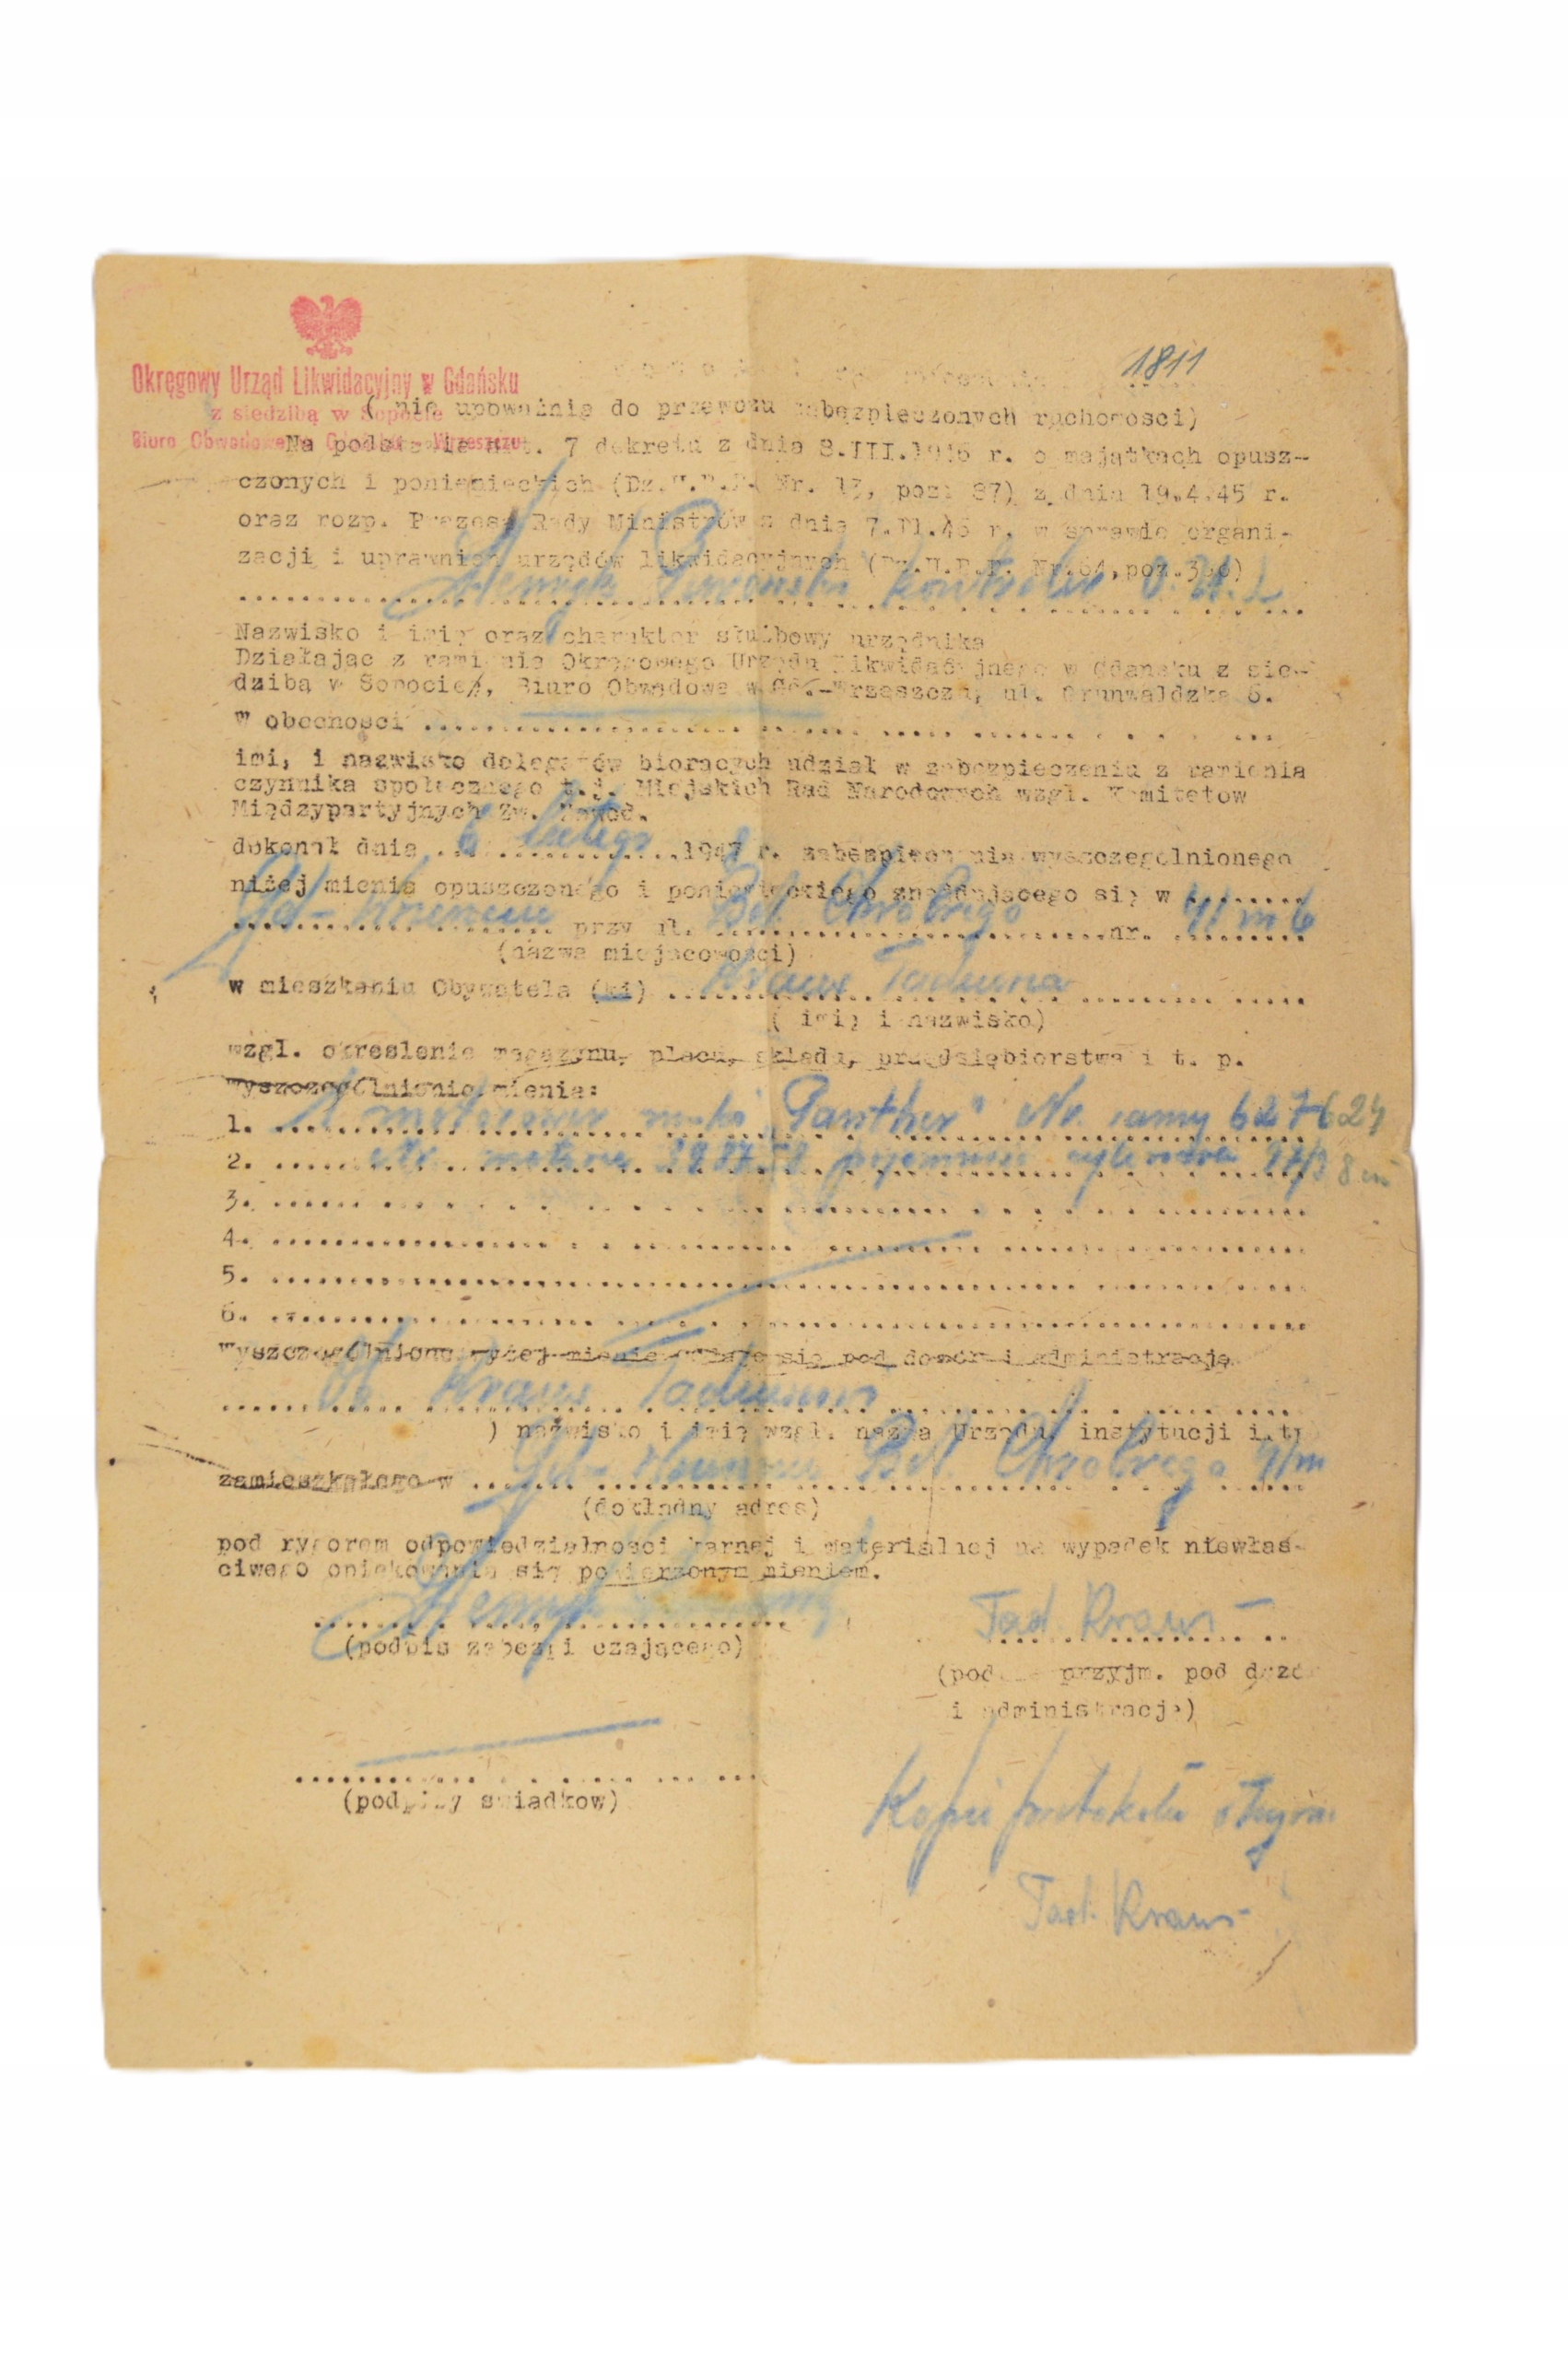 1811
Okręgowy Urząd Likwidacyjny w Gdańsku
z siedzibą w Sopocie
Biuro Obwodowe Wrzeszczu
( nie upoważnia do przewozu zabezpieczonych ruchomosci)
Na podstawie art. 7 dekretu z dnia 8.III.1946 r. o majątkach opusz-
czonych i poniemieckich (Dz.U.R.P. Nr. 13, poz. 87) z dnia 19.4.45 r.
oraz rozp. Prezesa Rady Ministrów z dnia r. w sprawie organi-
zacji i uprawnień urzędów likwidacyjnych (Dz.U.R.P. Nr.
Henryk kontroler O.U.L
Nazwisko i imię oraz charakter służbowy urzędnika
Działając z ramienia Okręgowego Urzędu Likwidacyjnego w Gdansku z sie-
dzibą w Sopocie, Biuro Obwodowe w Gd.-Wrzeszczu, ul. Grunwaldzka 6.
w obecnosci
imi, i nazwisko delegatów biorących udział w zabezpieczeniu z ramienia
czynnika społecznego t.j. Miejskich Rad Narodowych wzgl. Komitetow
Międzypartyjnych Zw. Zawod.
dokonał dnia 6 lutego 1947 r. zabezpieczenia wyszczególnionego
niżej mienia opuszczonego i poniemieckiego znajdującego się w
przy ul. Bol. Chrobrego nr. m 6
(nazwa miejscowości)
w mieszkaniu Obywatela (ki) Kraus Tadeusza
( imię i nazwisko)
wzgl. okreslenie magazynu, placu, składu, przedsiębiorstwa i t. p.
Wyszczególnienie mienia:
1. marki "Panther" Nr. ramy 627624
2. Nr. motoru pojemność cylindra
3.
4.
5.
6.
Wyszczególnione wyżej mienie oddaje się pod dozór i administrację
Ob. Kraus Tadeusz
) nazwisko i imię wzgl. nazwa Urzędu, instytucji i.t
zamieszkałego w Bol. Chrobrego
(dokładny adres)
pod rygorem odpowiedzialnosci karnej i materialnej na wypadek niewłas-
ciwego opiekowania się powierzonym mieniem.
Henryk
Tad. Kraus
(podpis zabezpieczającego)
(podpis przyjm. pod dozór
i administrację)
(podpisy swiadkow)
Kopię protokołu otrzym.
Tad. Kraus